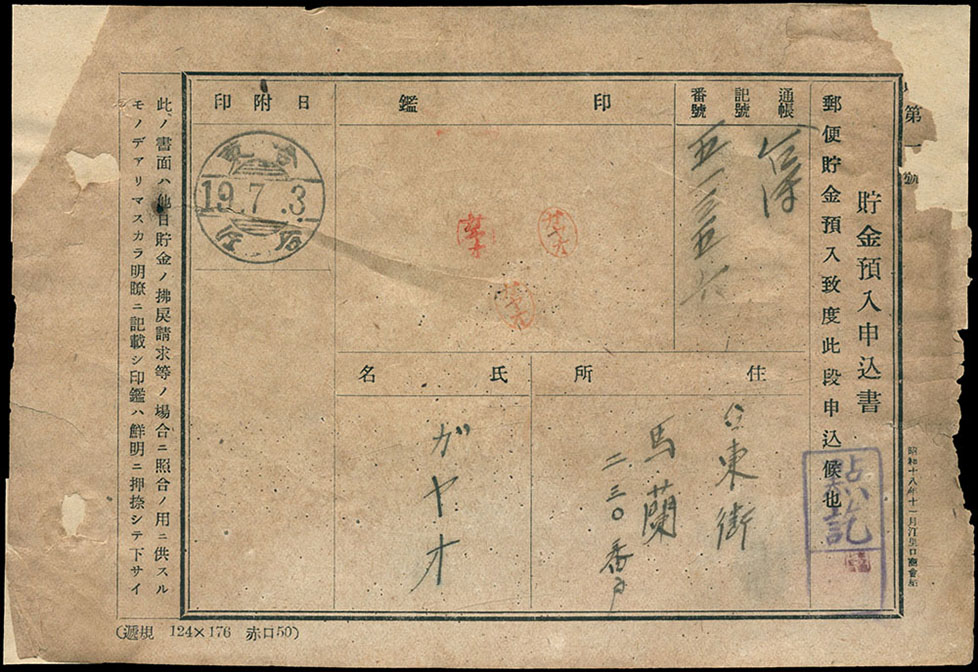 第一號
貯金預入申込書
郵便貯金預入致度此段申込候也
通帳
記號
番號
五一三五六
印鑑
日附印
臺東
19.7.3
住所
台東街
馬蘭
二三〇番戶
氏名
ガヤオ
此ノ書面ハ他日貯金ノ拂戾請求等ノ場合ニ照合ノ用ニ供スル
モノデアリマスカラ明瞭ニ記載シ印鑑ハ鮮明ニ押捺シテ下サイ
(遞規 124×176 赤口50)
昭和十八年十一月